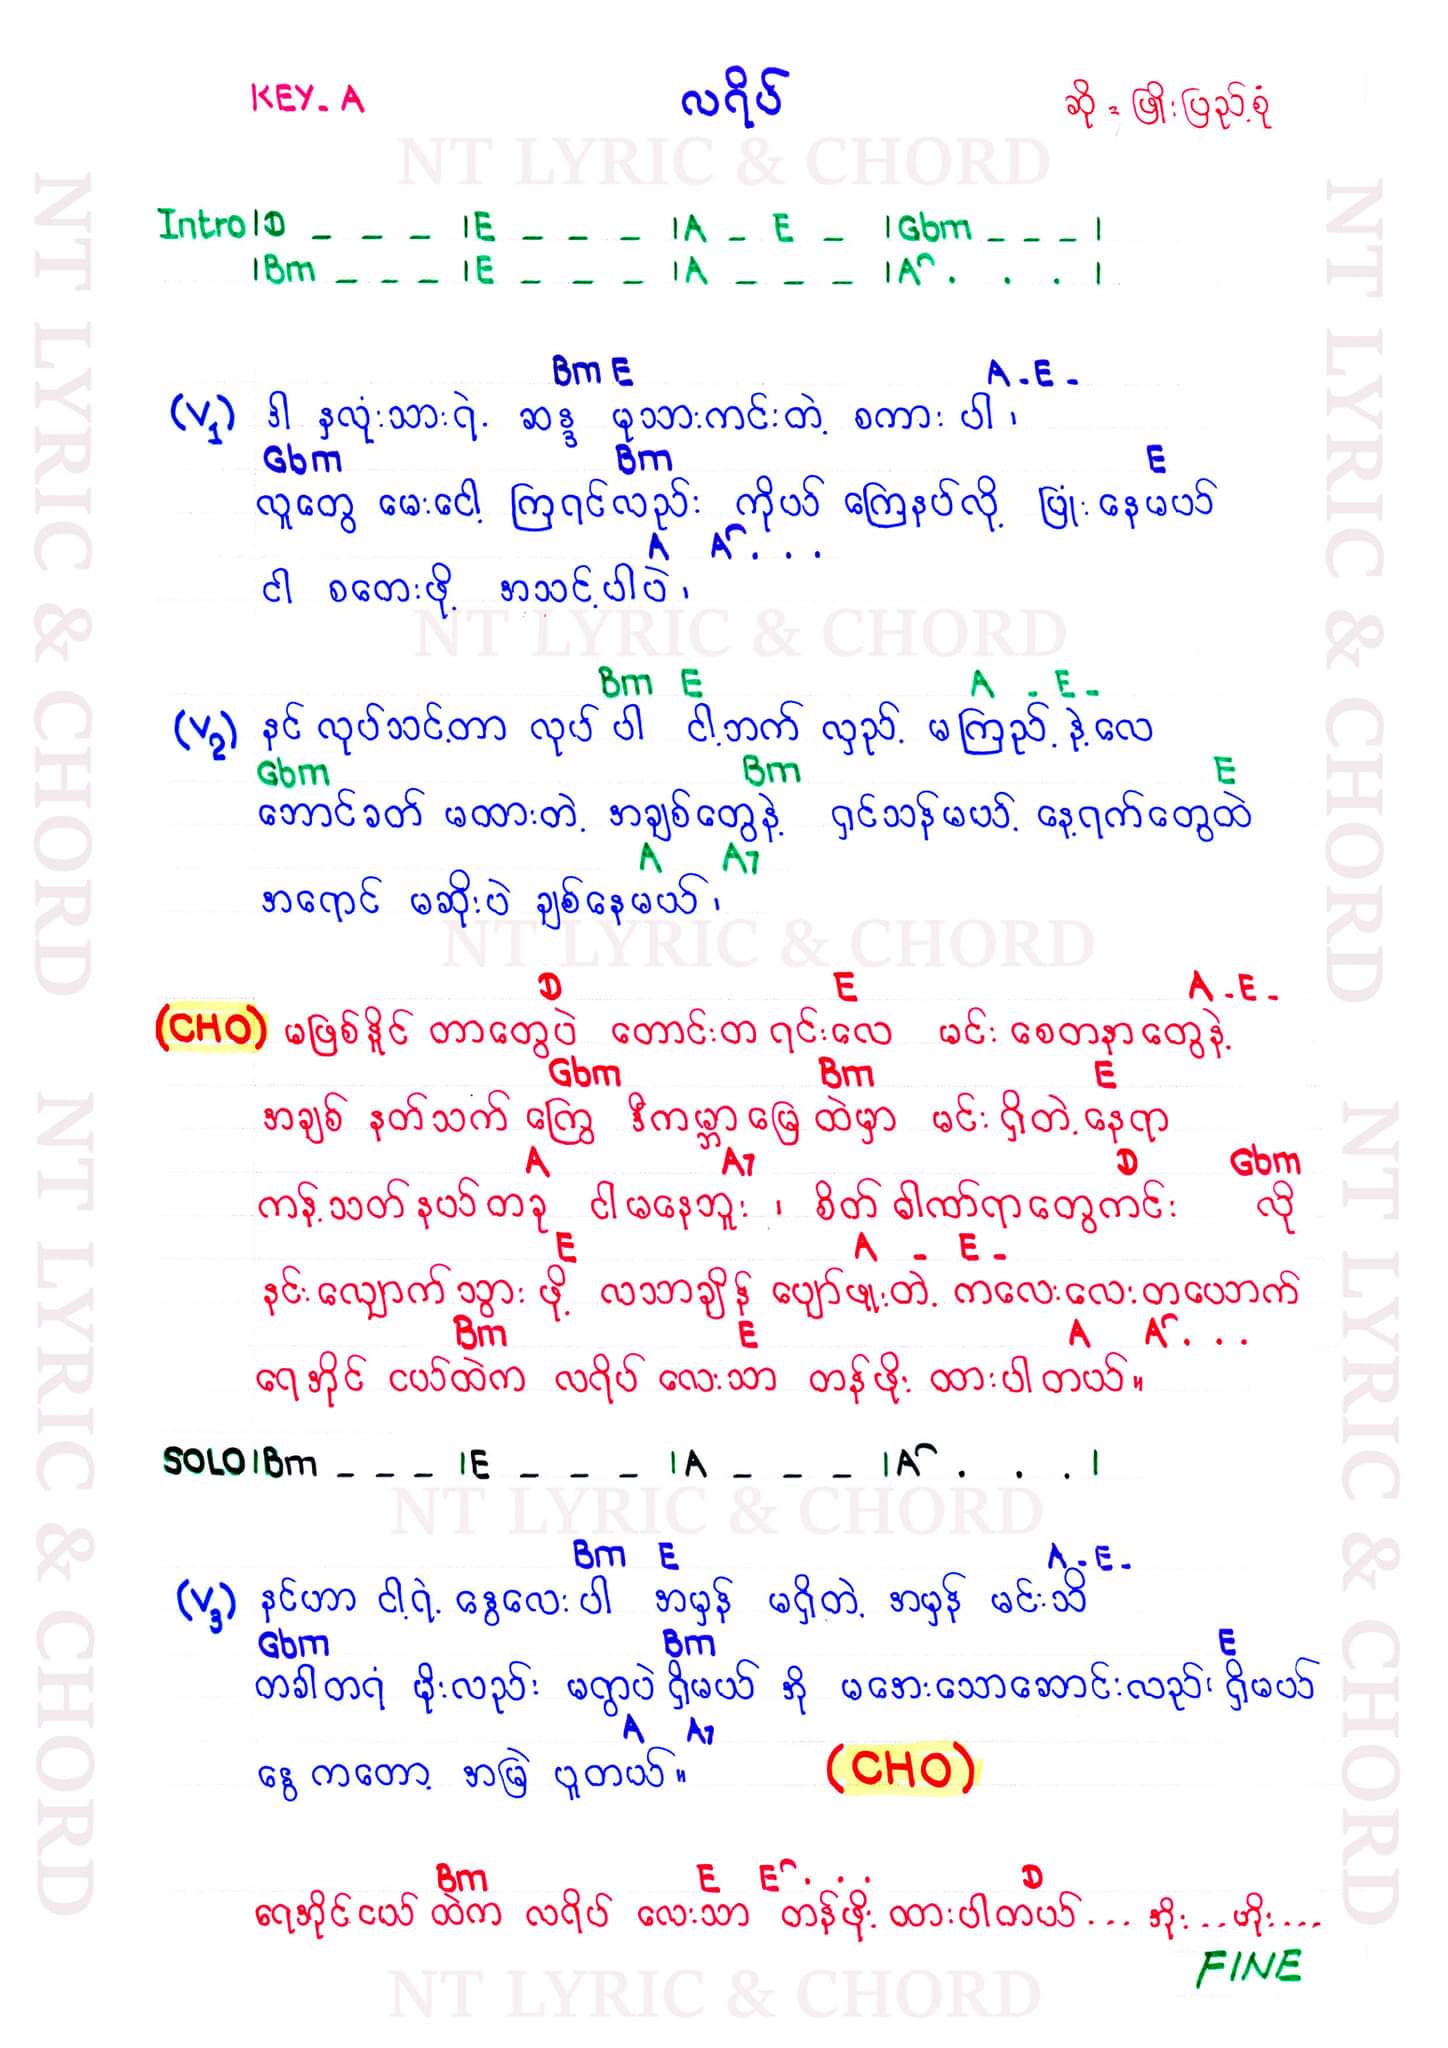 KEY - A လရိပ် ဆို = ဖြိုးပြည့်စုံ
NT LYRIC & CHORD
Intro |D _ _ _ |E _ _ _ |A _ E _ |Gbm _ _ _ |
|Bm _ _ _ |E _ _ _ |A _ _ _ |A⌒ . . . |
Bm E A - E -
(V1) ဒါ နှလုံးသားရဲ့ ဆန္ဒ မုသားကင်းတဲ့ စကား ပါ ၊
Gbm Bm E
လူတွေ မေးငေါ့ ကြရင်လည်း ကိုယ် ကြေနပ်လို့ ပြုံးနေမယ်
A A⌒ . . .
ငါ စတေးဖို့ အသင့်ပါပဲ ၊
NT LYRIC & CHORD
Bm E A - E -
(V2) နင် လုပ်သင့်တာ လုပ် ပါ ငါ့ဘက် လှည့် မကြည့် နဲ့လေ
Gbm Bm E
ဘောင်ခတ် မထားတဲ့ အချစ်တွေနဲ့ ရှင်သန်မယ့် နေ့ရက်တွေထဲ
A A7
အရောင် မဆိုးပဲ ချစ်နေမယ် ၊
NT LYRIC & CHORD
D E A - E -
(CHO) မဖြစ်နိူင် တာတွေပဲ တောင်းတ ရင်းလေ မင်း စေတနာတွေနဲ့
Gbm Bm E
အချစ် နတ်သက် ကြွေ ဒီကမ္ဘာမြေ ထဲမှာ မင်း ရှိတဲ့ နေရာ
A A7 D Gbm
ကန့်သတ်နယ်တခု ငါမနေဘူး ၊ စိတ် ဓါဏ်ရာတွေကင်း လို
E A - E -
နင်းလျှောက်သွား ဖို့ လသာချိန် ပျော်ဖူးတဲ့ ကလေးလေးတယောက်
Bm E A A⌒ . . .
ရေအိုင် ငယ်ထဲက လရိပ် လေးသာ တန်ဖိုး ထားပါတယ်။
SOLO |Bm _ _ _ |E _ _ _ |A _ _ _ |A⌒ . . . |
NT LYRIC & CHORD
Bm E A - E -
(V3) နင်ဟာ ငါ့ရဲ့ နွေလေးပါ အမှန် မရှိတဲ့ အမှန် မင်းသိ
Gbm Bm E
တခါတရံ မိုးလည်း မရွာပဲ ရှိမယ် အို မအေးသောဆောင်းလည်း ရှိမယ်
A A7
နွေ ကတော့ အမြဲ ပူတယ်။ (CHO)
Bm E E⌒ . . . D
ရေအိုင်ငယ် ထဲက လရိပ် လေးသာ တန်ဖိုး ထားပါတယ် ... အိုး ... ဟိုး ....
FINE
NT LYRIC & CHORD
NT LYRIC & CHORD
NT LYRIC & CHORD
NT LYRIC & CHORD
NT LYRIC & CHORD